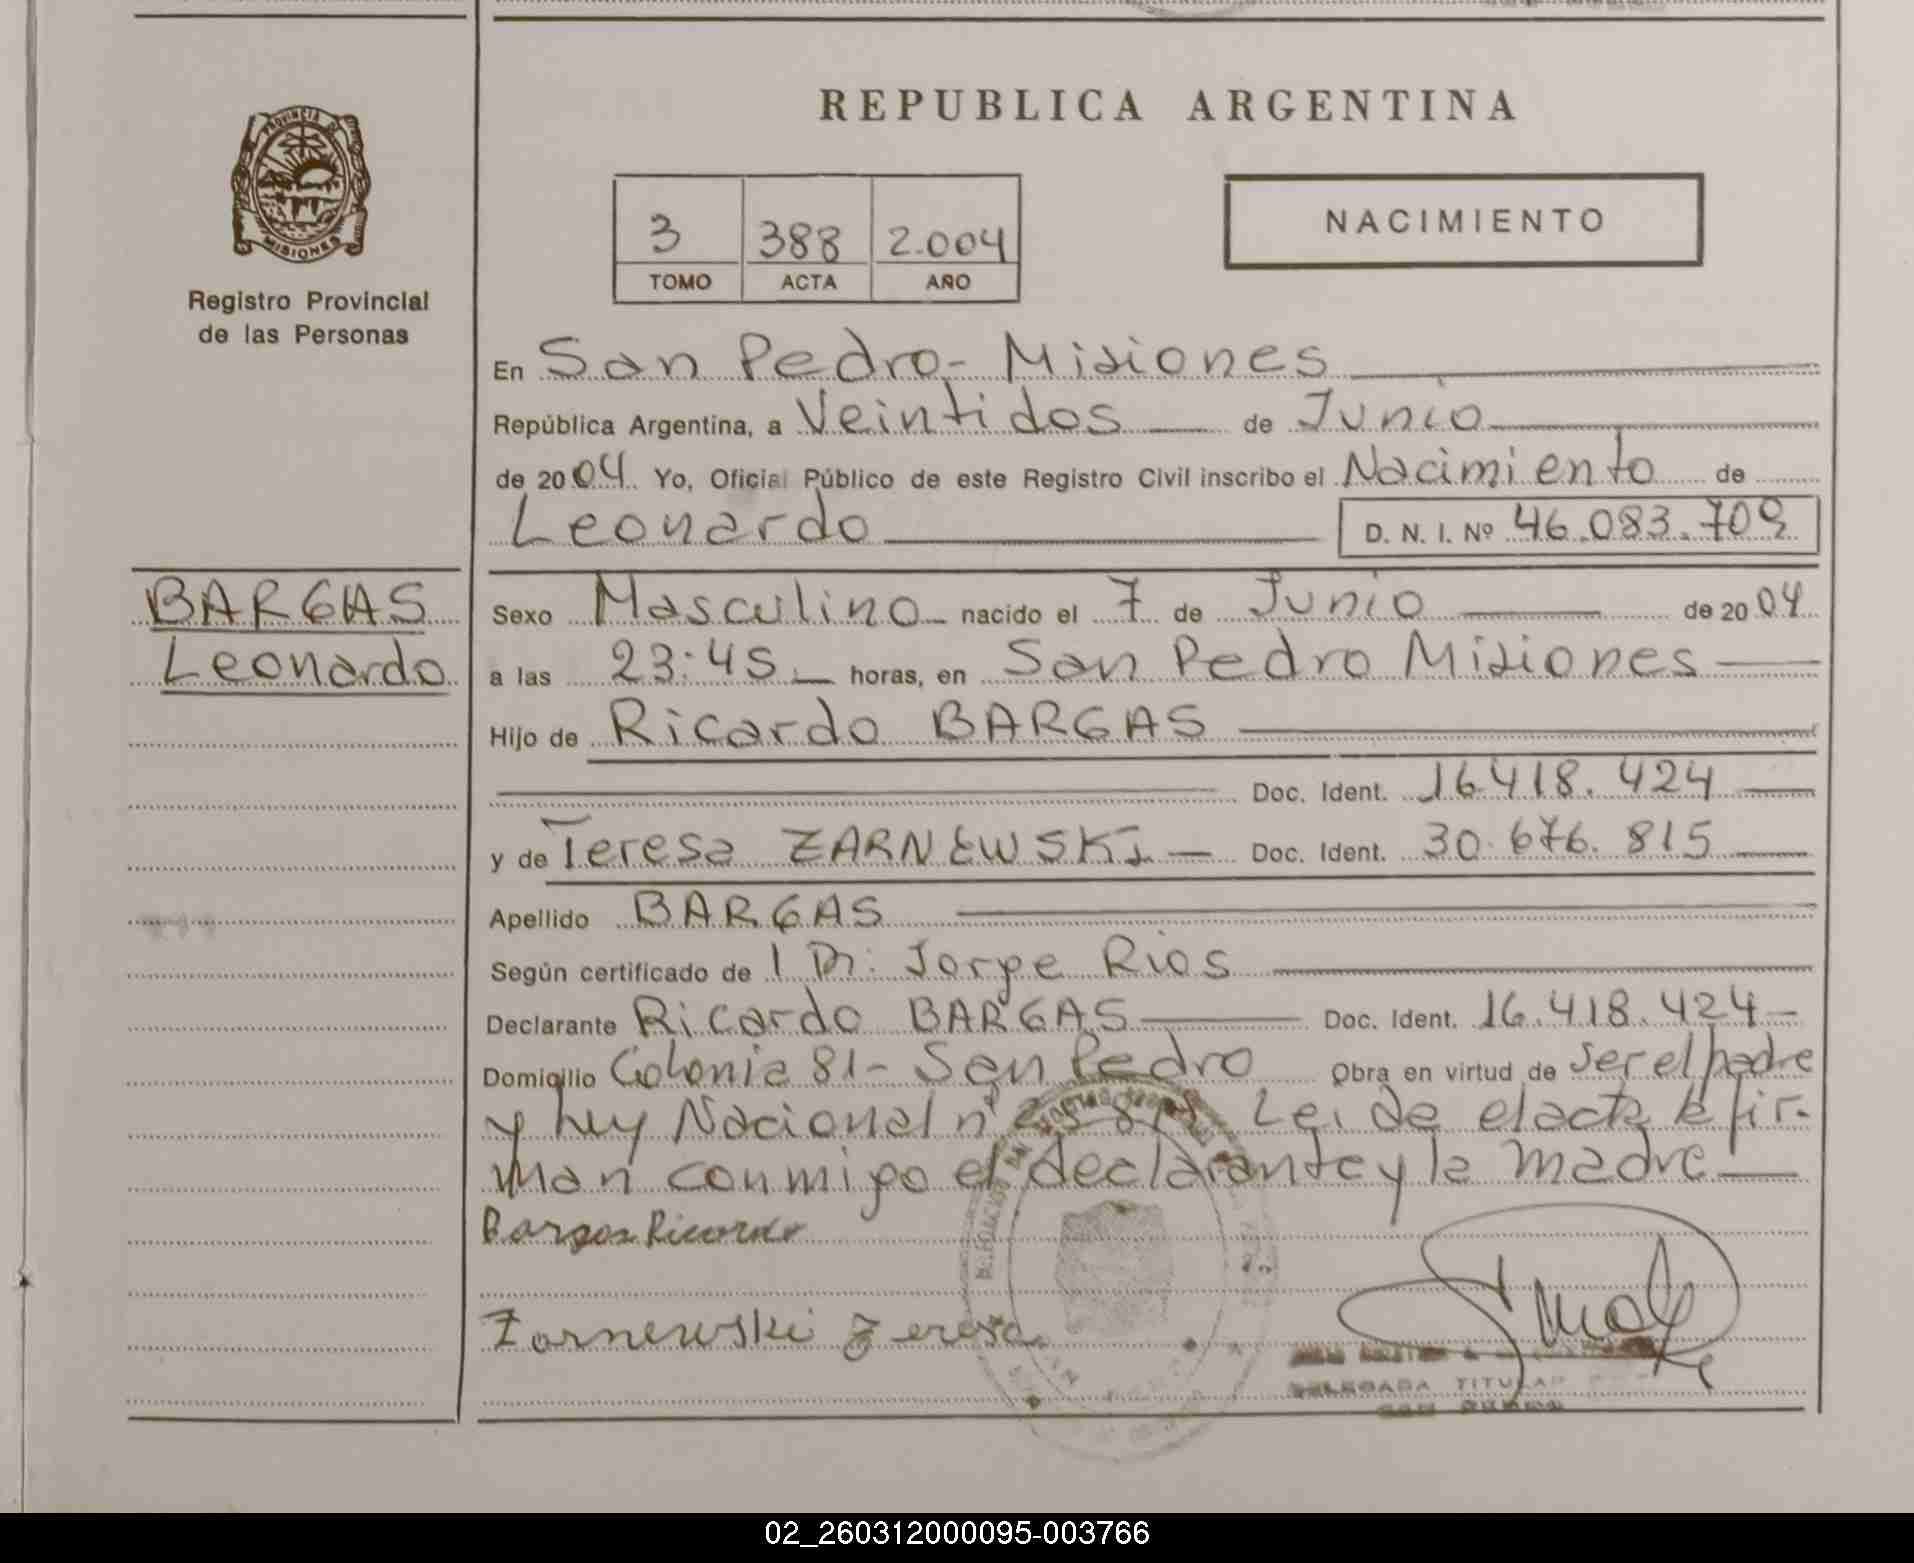 REPUBLICA ARGENTINA
PROVINCIA DE
MISIONES
Registro Provincial
de las Personas
3 388 2.004
TOMO ACTA AÑO
NACIMIENTO
En San Pedro - Misiones
República Argentina, a Veintidos de Junio
de 2004 Yo, Oficial Público de este Registro Civil inscribo el Nacimiento de
Leonardo D. N. I. Nº 46.083.709
BARGAS
Leonardo
Sexo Masculino nacido el 7 de Junio de 2004
a las 23:45 horas, en San Pedro Misiones
Hijo de Ricardo BARGAS
Doc. Ident. 16.418.424
y de Teresa ZARNEWSKI Doc. Ident. 30.676.815
Apellido BARGAS
Según certificado de Dr: Jorge Rios
Declarante Ricardo BARGAS Doc. Ident. 16.418.424
Domicilio Colonia 81 - San Pedro Obra en virtud de ser el padre
y ley Nacional nº Leida el acta la fir-
man conmigo el declarante y la madre
Bargas Ricardo
Zarnewski Teresa
DELEGADA TITULAR
02_260312000095-003766